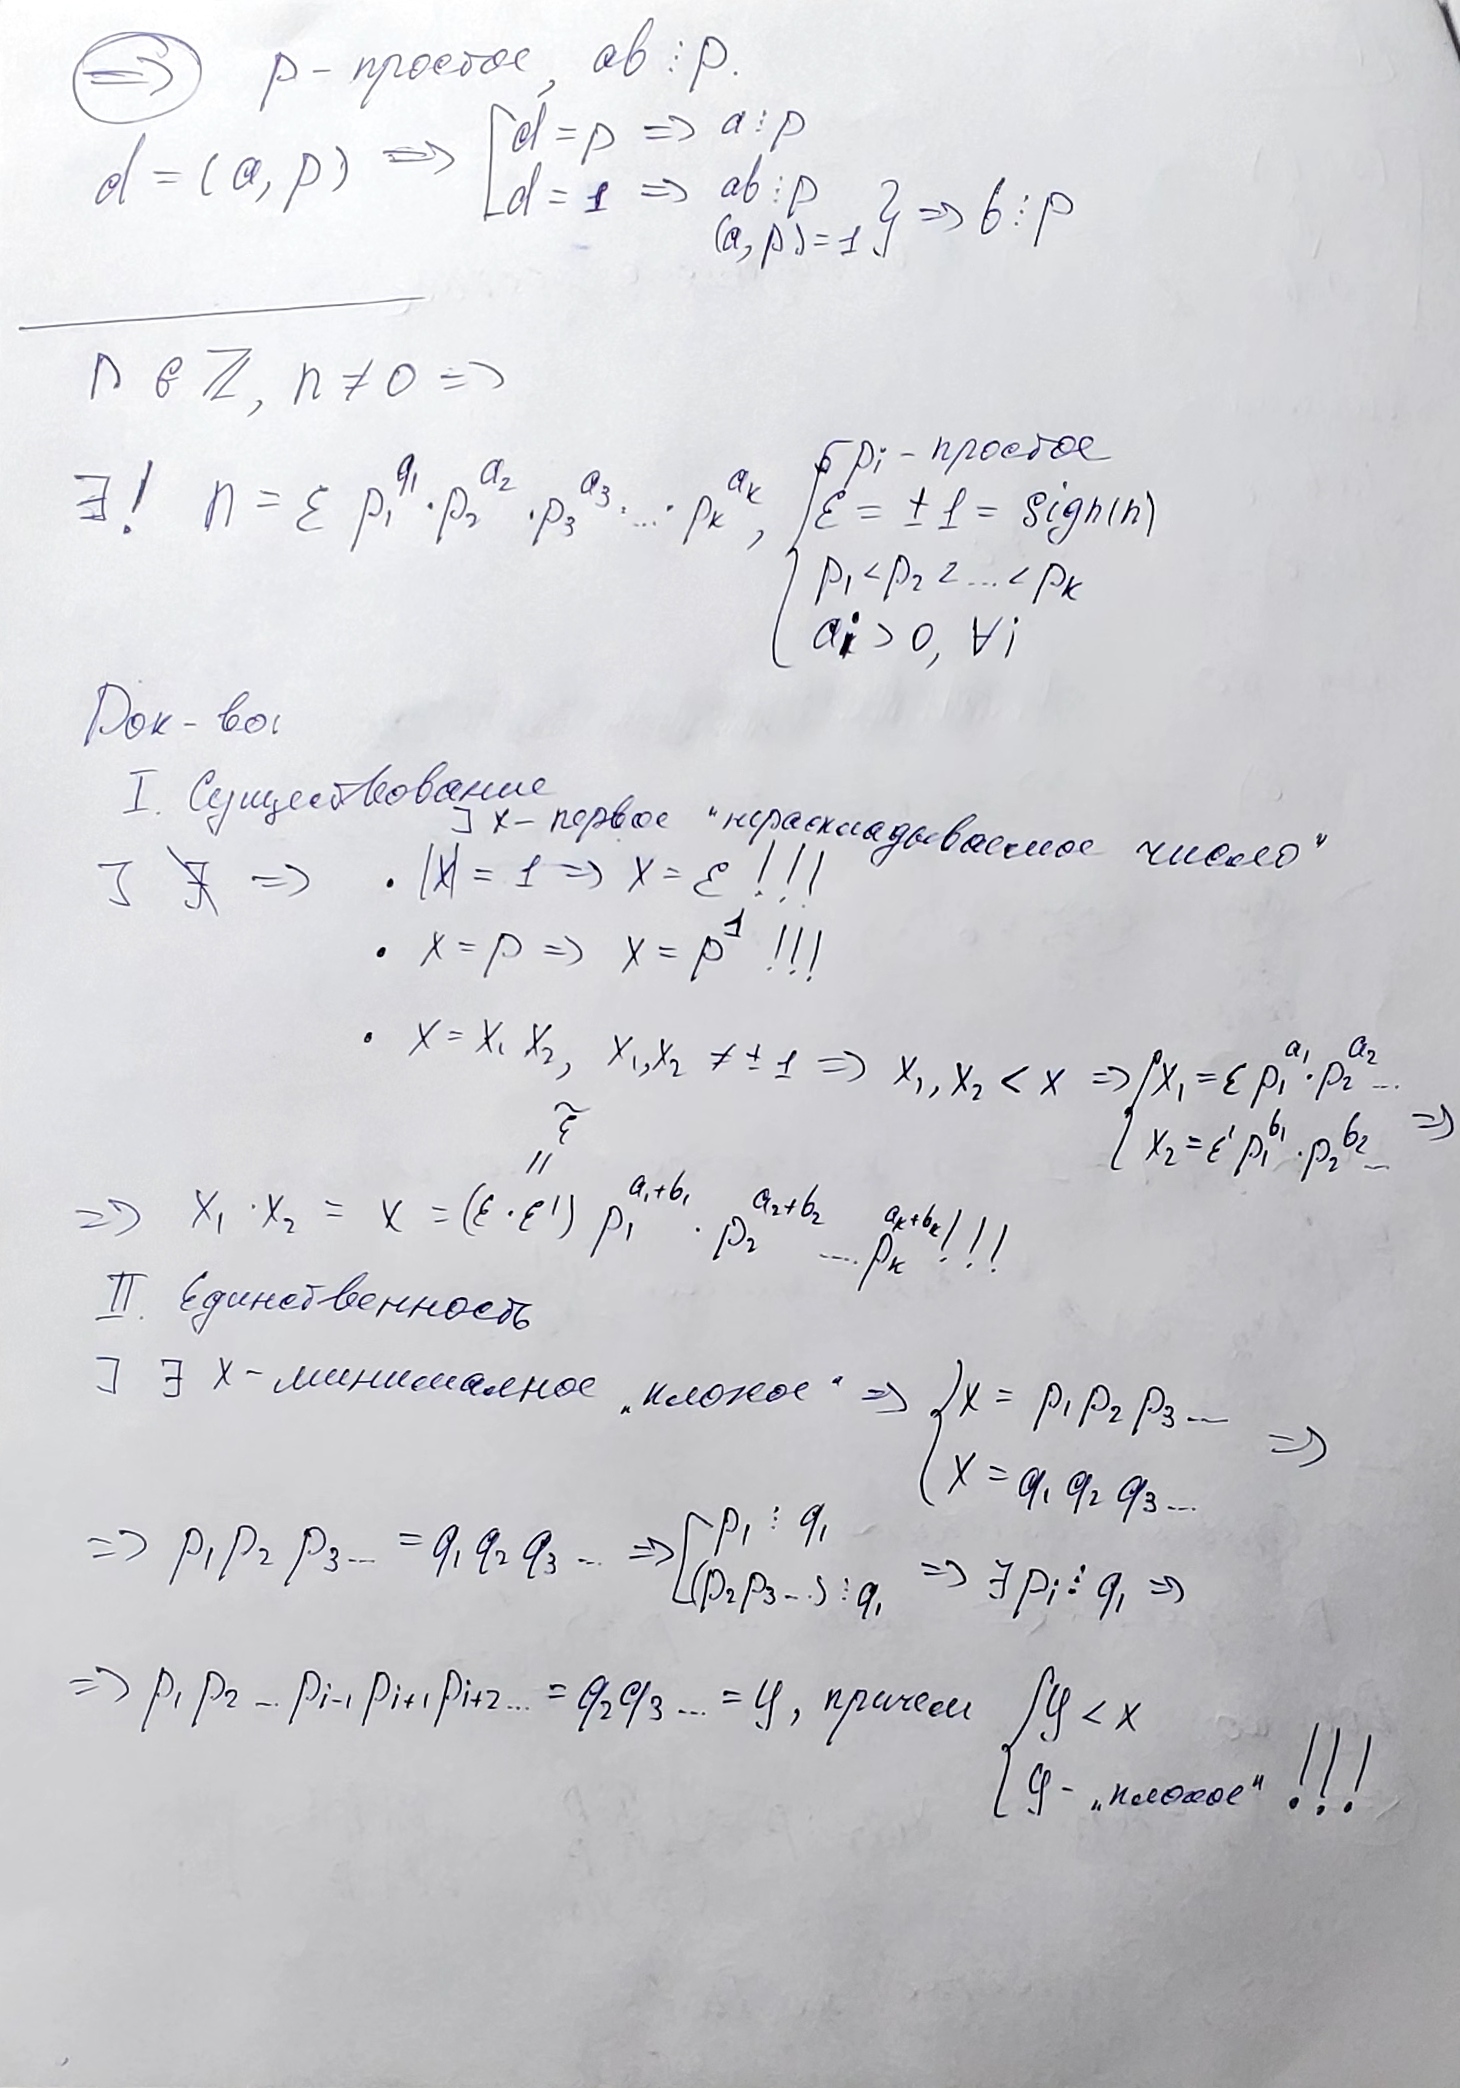 ⇒ p - простое, ab ⋮ p.
d = (a, p) ⇒ [ d = p ⇒ a ⋮ p
d = 1 ⇒ ab ⋮ p
(a, p) = 1 } ⇒ b ⋮ p
n ∈ ℤ, n ≠ 0 ⇒
∃! n = ε p₁^a₁ · p₂^a₂ · p₃^a₃ · ... · pₖ^aₖ, { pᵢ - простое
ε = ± 1 = sign(n)
p₁ < p₂ < ... < pₖ
aᵢ > 0, ∀i
Док-во:
I. Существование
] x - первое "нераскладываемое число"
] ∄ ⇒ · |x| = 1 ⇒ x = ε !!!
· x = p ⇒ x = p¹ !!!
· x = x₁ x₂, x₁, x₂ ≠ ± 1 ⇒ x₁, x₂ < x ⇒ { x₁ = ε p₁^a₁ · p₂^a₂ ...
x₂ = ε' p₁^b₁ · p₂^b₂ ... ⇒
ε̃
=
⇒ x₁ · x₂ = x = (ε · ε') p₁^a₁+b₁ · p₂^a₂+b₂ ... pₖ^aₖ+bₖ !!!
II. Единственность
] ∃ x - минималное „плохое" ⇒ { x = p₁ p₂ p₃ ...
x = q₁ q₂ q₃ ... ⇒
⇒ p₁ p₂ p₃ ... = q₁ q₂ q₃ ... ⇒ [ p₁ ⋮ q₁
(p₂ p₃ ...) ⋮ q₁ ⇒ ∃ pᵢ ⋮ q₁ ⇒
⇒ p₁ p₂ ... pᵢ₋₁ pᵢ₊₁ pᵢ₊₂ ... = q₂ q₃ ... = y, причем { y < x
y - „плохое" !!!